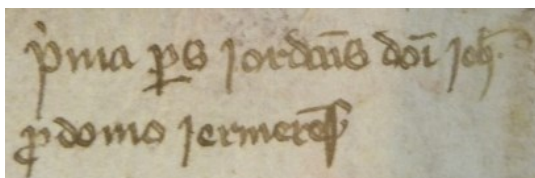 p̍ma ꝑs Jordan̄s doī Joh̄.
ꝓ domo Jermerēs